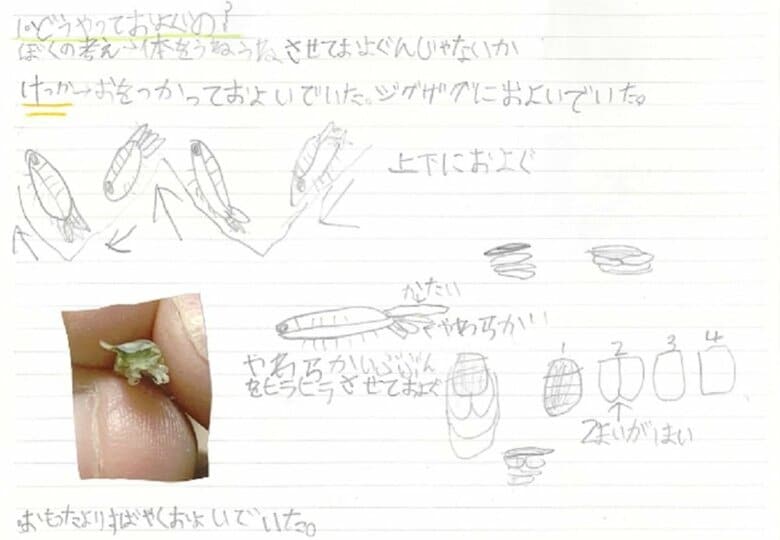 1.どうやっておよぐの?
ぼくの考え→体をうねうねさせておよぐんじゃないか
けっか→おをつかっておよいでいた。ジグザグにおよいでいた。
上下におよぐ
かたい
やわらかい
やわらかいぶぶん
をヒラヒラさせておよぐ
1 2 3 4
2まいがはい
おもったよりすばやくおよいでいた。